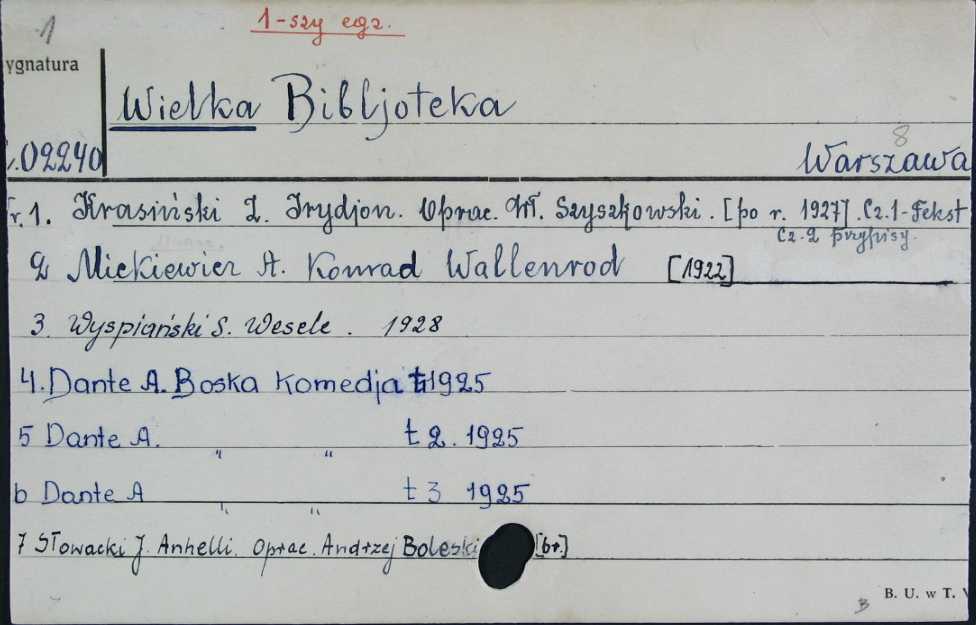 1
1-szy egz.
ygnatura
Wielka Bibljoteka
8
.02240
Warszawa
r.1. Krasiński Z. Irydjon. Oprac. Wł. Szyszkowski. [po r. 1927]. Cz.1-Tekst
Cz.2 przypisy.
2 Mickiewicz A. Konrad Wallenrod [1922]
3. Wyspiański S. Wesele. 1928
4. Dante A. Boska Komedja t1 1925
5 Dante A. " " t 2. 1925
6 Dante A " " t 3 1925
7 Słowacki J. Anhelli. Oprac. Andrzej Boleski [br.]
B B. U. w T.